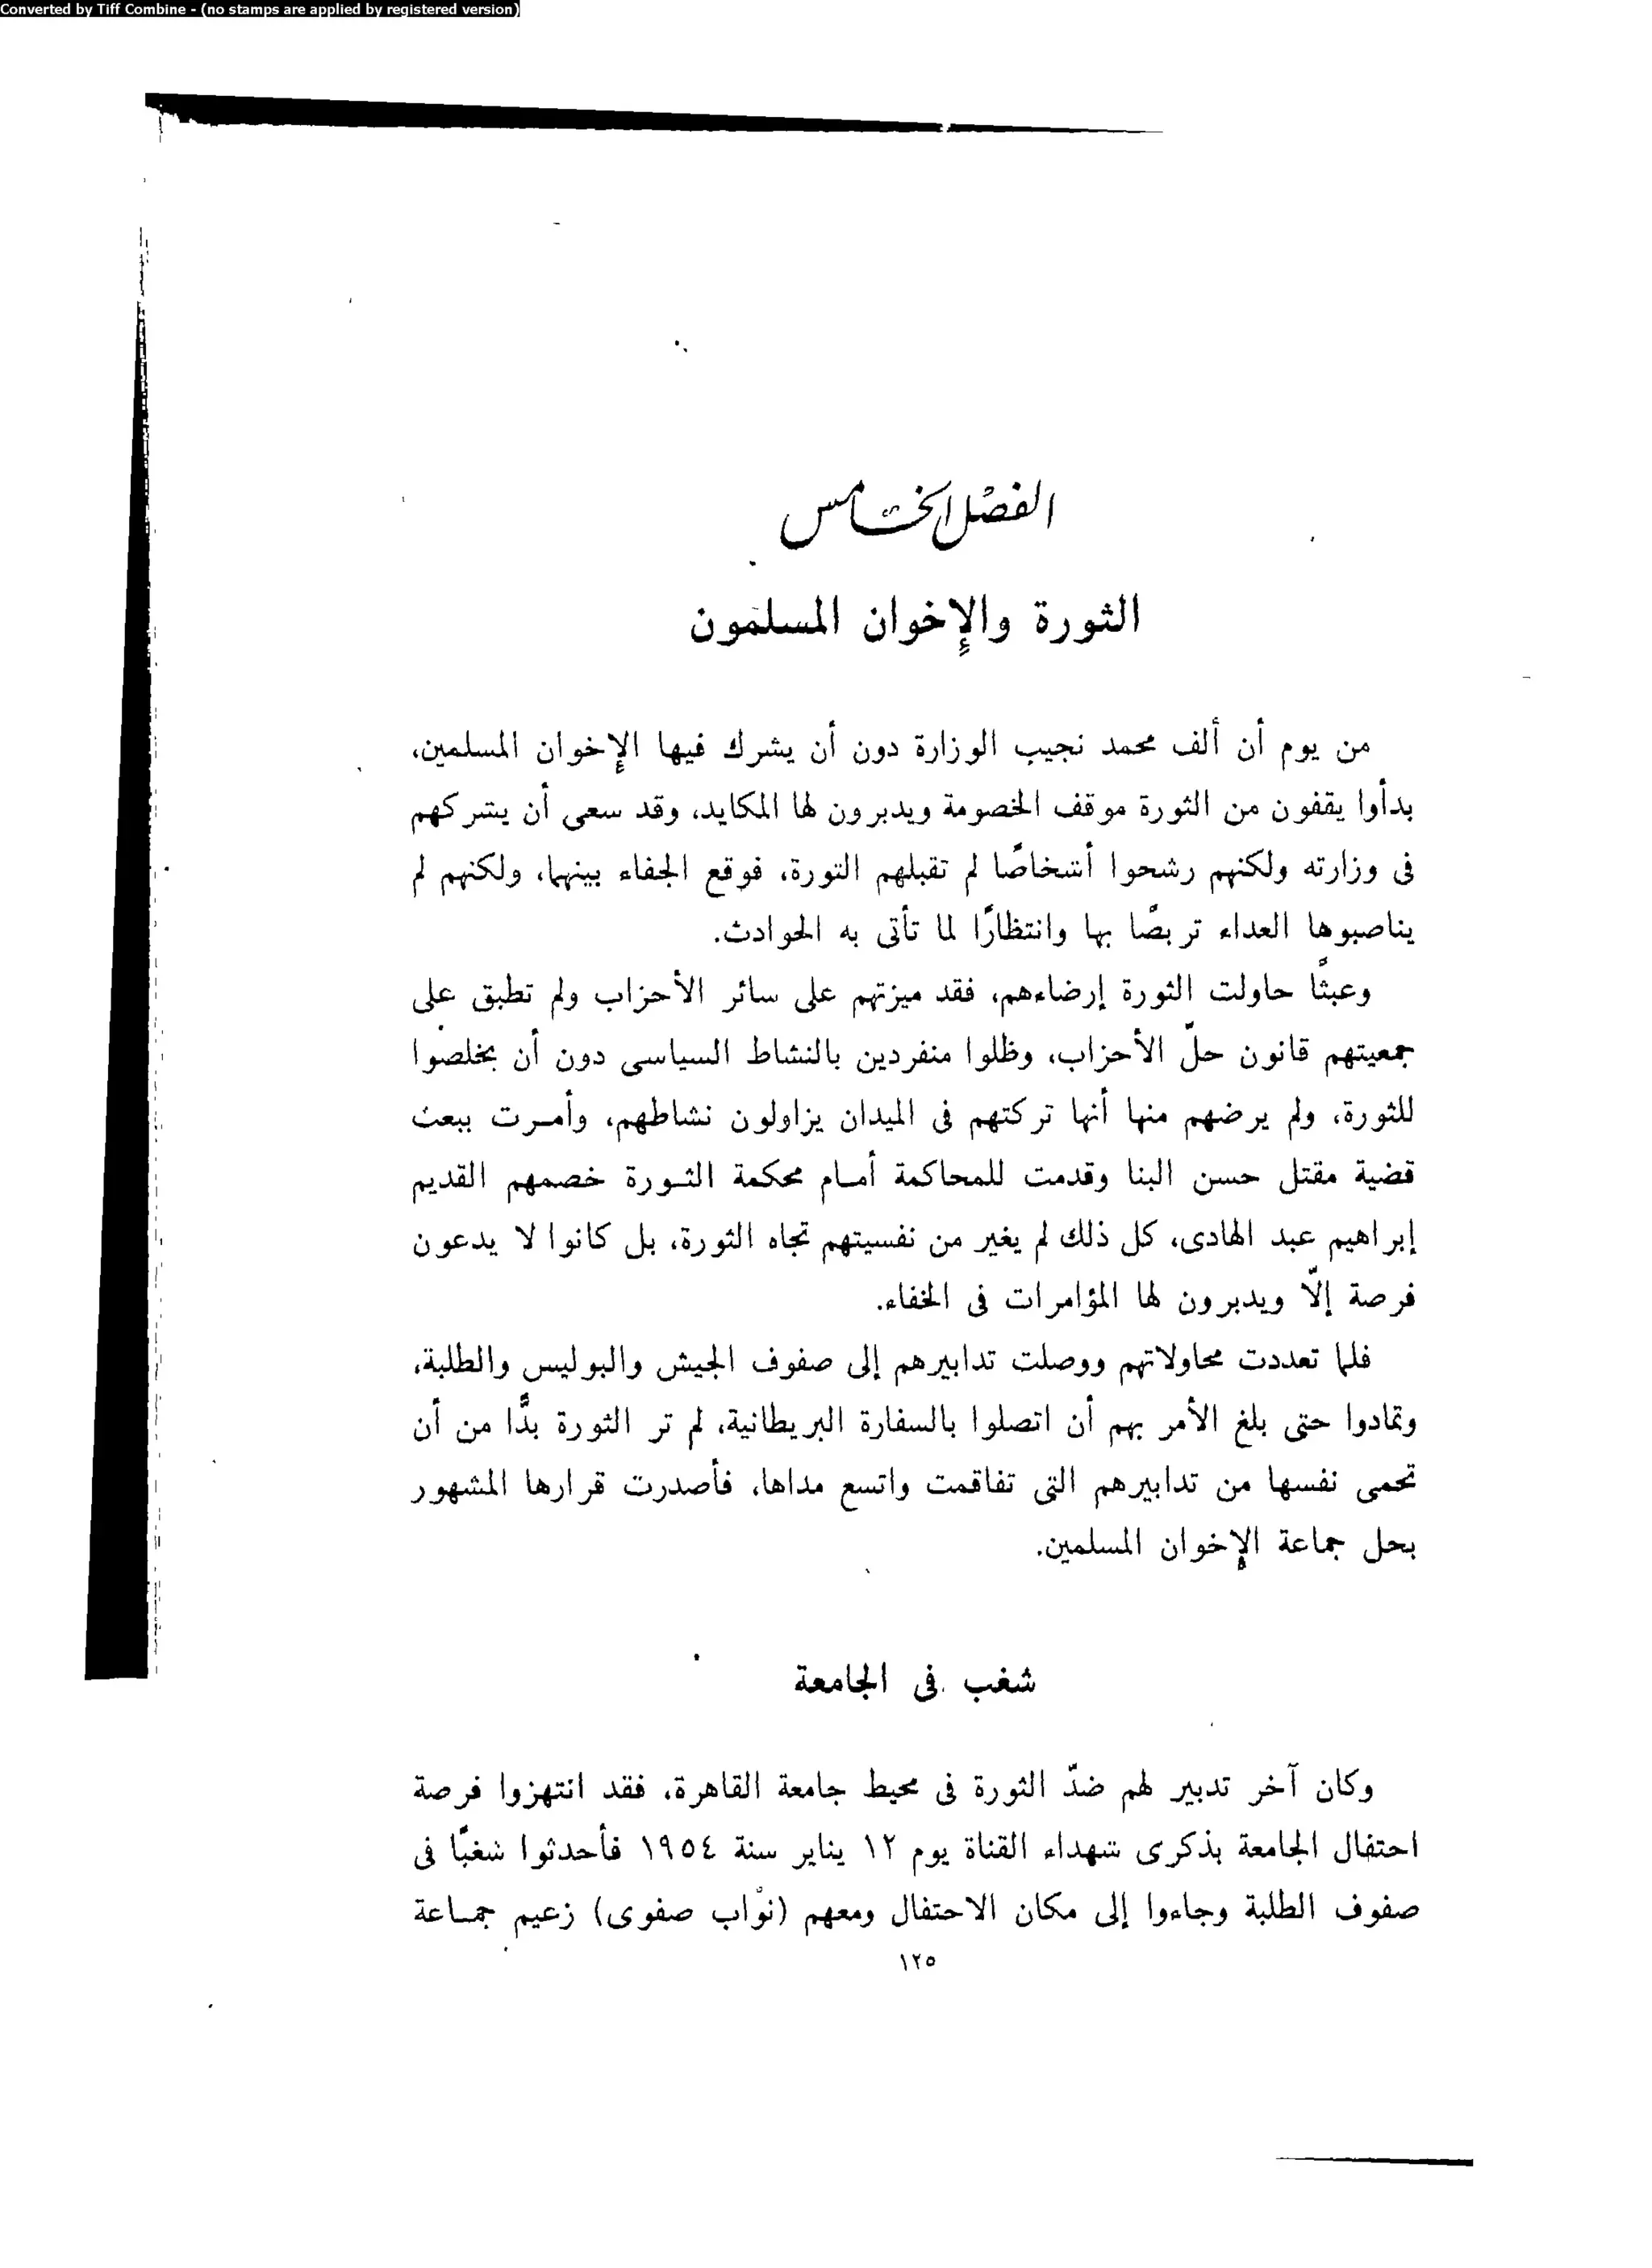 Converted by Tiff Combine - (no stamps are applied by registered version)
الفصل الخامس
الثورة والإخوان المسلمون
من يوم أن ألف محمد نجيب الوزارة دون أن يشرك فيها الإخوان المسلمين،
بدأوا يقفون من الثورة موقف الخصومة ويدبرون لها المكايد، وقد سعى أن يشركهم
فى وزارته ولكنهم رشحوا أشخاصًا لم تقبلهم الثورة، فوقع الجفاء بينهما، ولكنهم لم
يناصبوها العداء تربصًا بها وانتظارًا لما تأتى به الحوادث.
وعبثًا حاولت الثورة إرضاءهم، فقد ميزتهم على سائر الأحزاب ولم تطبق على
جمعيتهم قانون حلّ الأحزاب، وظلوا منفردين بالنشاط السياسى دون أن يخلصوا
للثورة، ولم يرضهم منها أنها تركتهم فى الميدان يزاولون نشاطهم، وأمرت ببعث
قضية مقتل حسن البنا وقدمت للمحاكمة أمام محكمة الثورة خصمهم القديم
إبراهيم عبد الهادى، كل ذلك لم يغير من نفسيتهم تجاه الثورة، بل كانوا لا يدعون
فرصة إلّا ويدبرون لها المؤامرات فى الخفاء.
فلما تعددت محاولاتهم ووصلت تدابيرهم إلى صفوف الجيش والبوليس والطلبة،
وتمادوا حتى بلغ الأمر بهم أن اتصلوا بالسفارة البريطانية، لم تر الثورة بدًّا من أن
تحمى نفسها من تدابيرهم التى تفاقمت واتسع مداها، فأصدرت قرارها المشهور
بحل جماعة الإخوان المسلمين.
شغب فى الجامعة
وكان آخر تدبير لهم ضدّ الثورة فى محيط جامعة القاهرة، فقد انتهزوا فرصة
احتفال الجامعة بذكرى شهداء القناة يوم ١٢ يناير سنة ١٩٥٤ فأحدثوا شغبًا فى
صفوف الطلبة وجاءوا إلى مكان الاحتفال ومعهم (نوّاب صفوى) زعيم جماعة
١٢٥